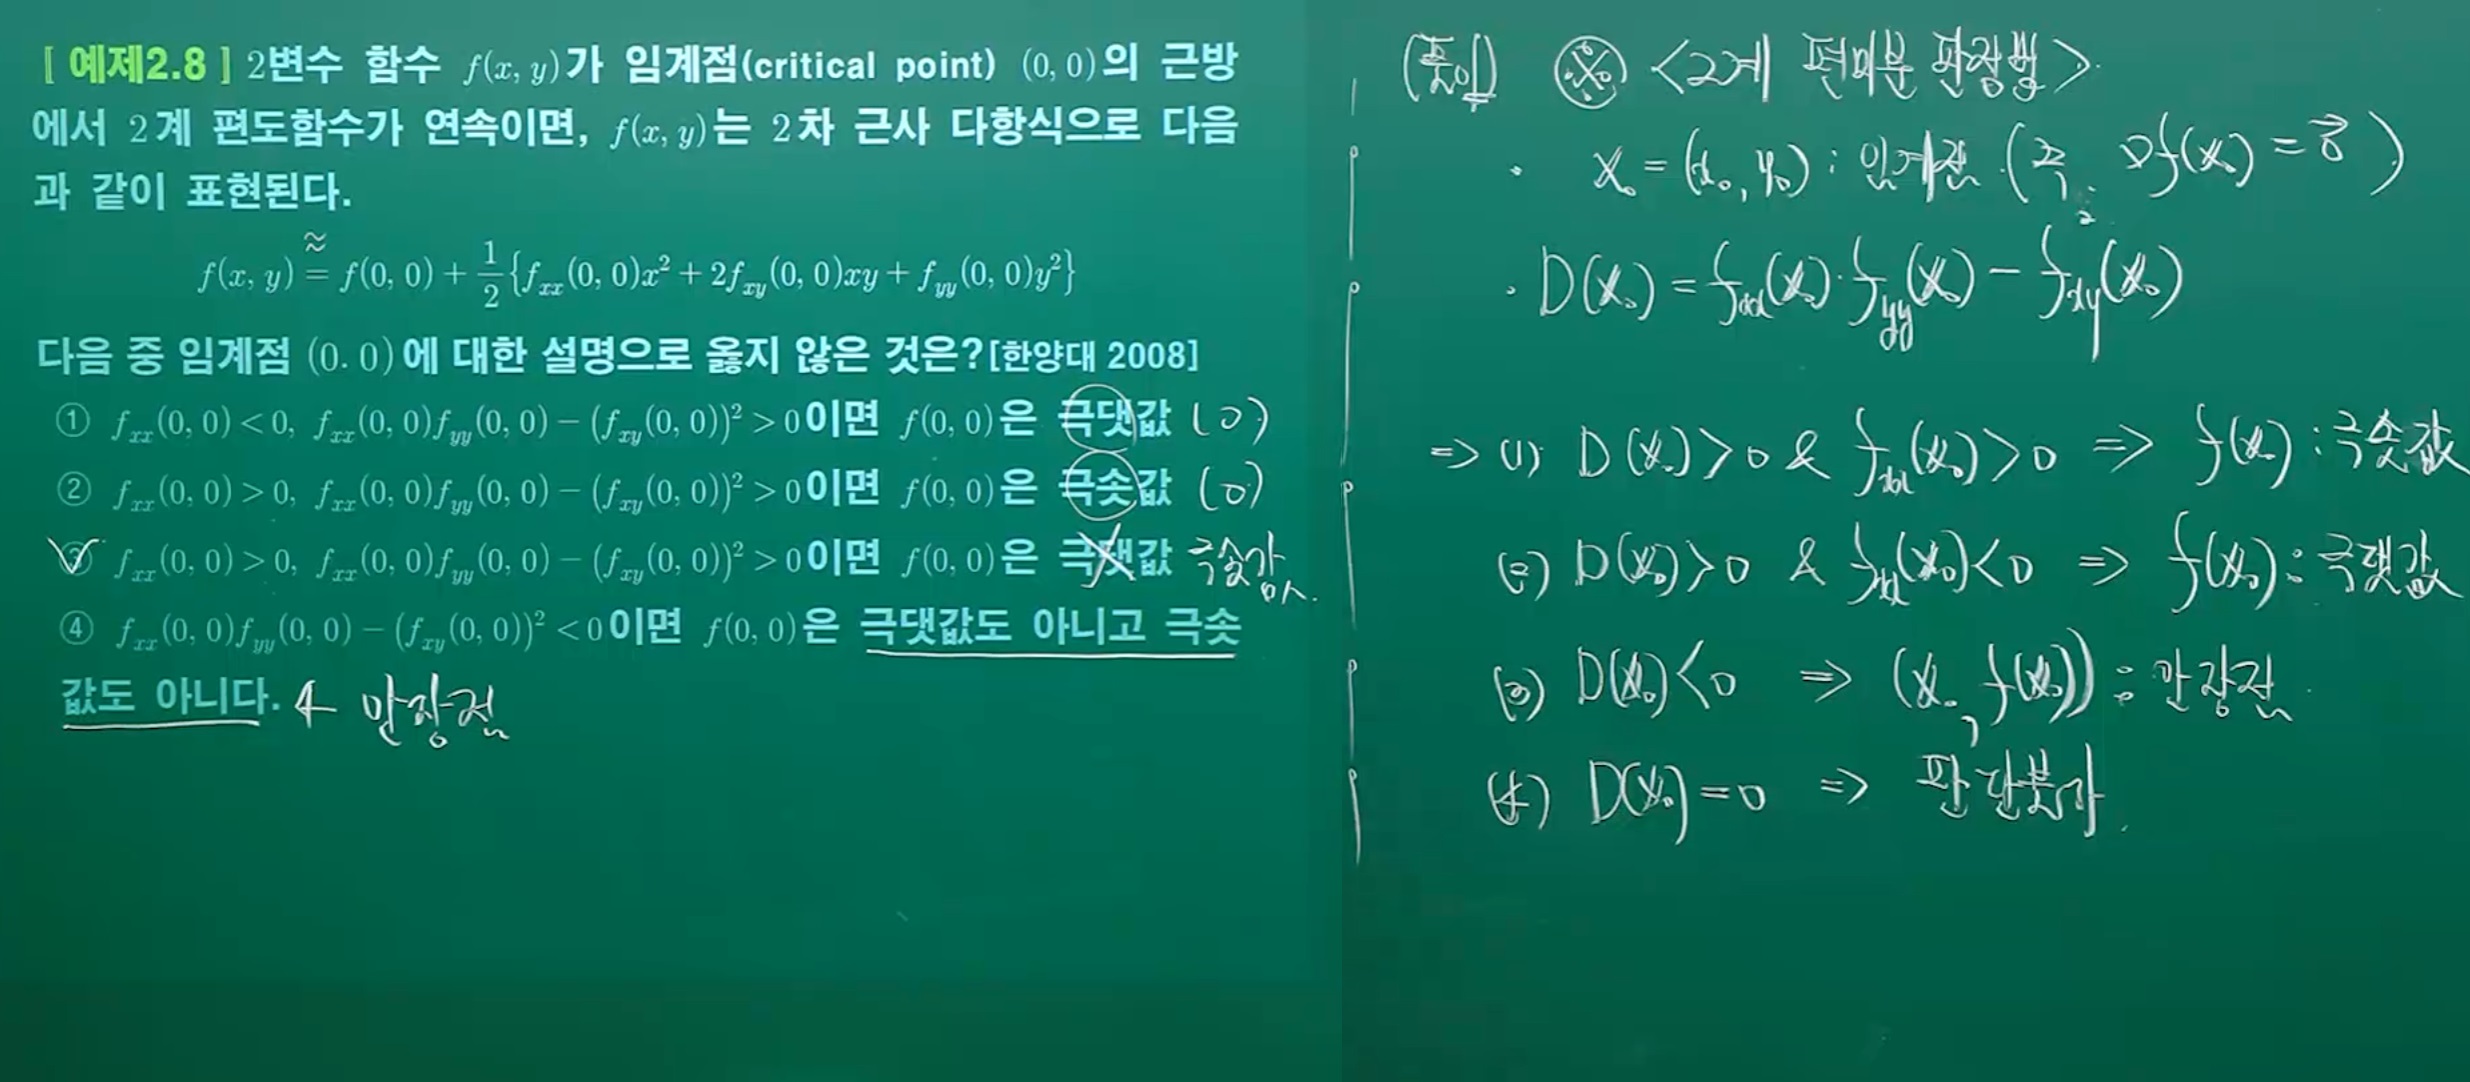 [ 예제2.8 ] 2변수 함수 f(x, y)가 임계점(critical point) (0, 0)의 근방
에서 2계 편도함수가 연속이면, f(x, y)는 2차 근사 다항식으로 다음
과 같이 표현된다.
≈
f(x, y) = f(0, 0) + 1/2 {f_xx(0, 0)x² + 2f_xy(0, 0)xy + f_yy(0, 0)y²}
다음 중 임계점 (0. 0)에 대한 설명으로 옳지 않은 것은?[한양대 2008]
① f_xx(0, 0) < 0, f_xx(0, 0)f_yy(0, 0) − (f_xy(0, 0))² > 0이면 f(0, 0)은 극댓값 (○)
② f_xx(0, 0) > 0, f_xx(0, 0)f_yy(0, 0) − (f_xy(0, 0))² > 0이면 f(0, 0)은 극솟값 (○)
③ f_xx(0, 0) > 0, f_xx(0, 0)f_yy(0, 0) − (f_xy(0, 0))² > 0이면 f(0, 0)은 극댓값 극솟값
④ f_xx(0, 0)f_yy(0, 0) − (f_xy(0, 0))² < 0이면 f(0, 0)은 극댓값도 아니고 극솟
값도 아니다. ← 안장점
(풀이) ※ <2계 편미분 판정법>
· X₀ = (x₀, y₀) : 임계점 (즉, ∇f(X₀) = 0⃗ )
· D(X₀) = f_xx(X₀)·f_yy(X₀) − f_xy²(X₀)
⇒ (1) D(X₀) > 0 & f_xx(X₀) > 0 ⇒ f(X₀) : 극솟값
(2) D(X₀) > 0 & f_xx(X₀) < 0 ⇒ f(X₀) : 극댓값
(3) D(X₀) < 0 ⇒ (X₀, f(X₀)) : 안장점
(4) D(X₀) = 0 ⇒ 판단불가